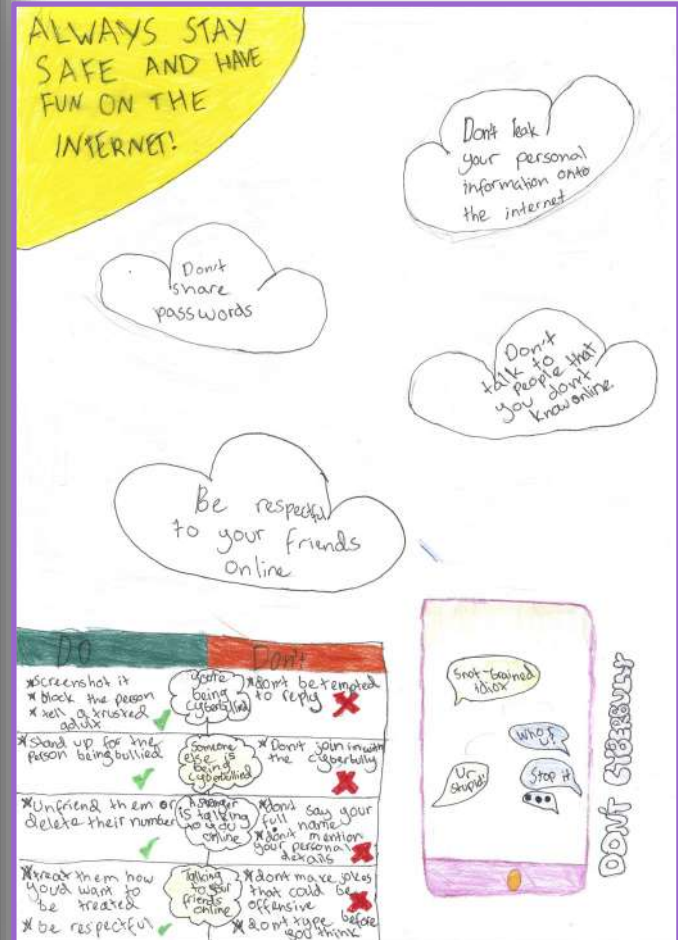 ALWAYS STAY
SAFE AND HAVE
FUN ON THE
INTERNET!
Don't leak
your personal
information onto
the internet
Don't
share
passwords
Don't
talk to
people that
you don't
know online
Be respectful
to your friends
online
DO
Don't
*screenshot it
*block the person
*tell a trusted
adult
you're
being
cyberbullied
*don't be tempted
to reply
*stand up for the
person being bullied
Someone
else is
being
cyberbullied
*Don't join in with
the cyberbully
*Unfriend them or
delete their number
A stranger
is talking
to you
online
*don't say your
full name
*don't mention
your personal
details
*treat them how
you'd want to
be treated
*be respectful
Talking
to your
friends
online
*dont make jokes
that could be
offensive
*don't type before
you think
Snot-brained
idiot
Who r
u?
Ur
stupid!
Stop it
DON'T CYBERBULLY